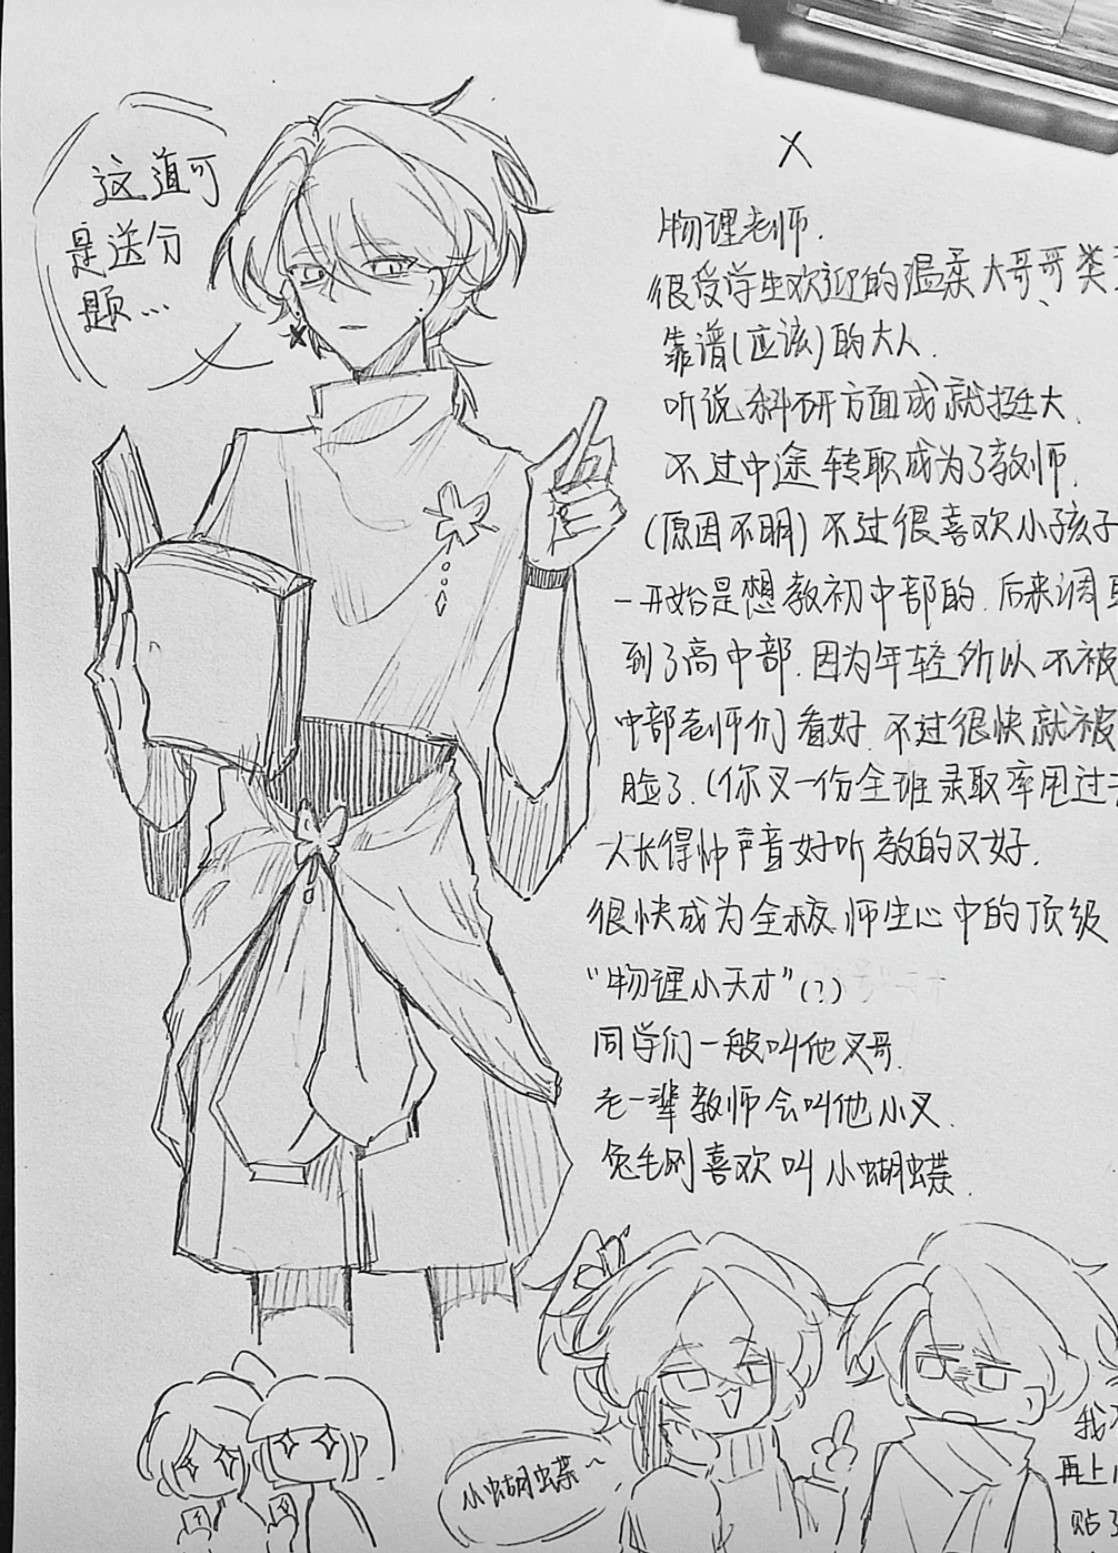 这道可
是送分
题...
X
物理老师.
很受学生欢迎的温柔大哥哥、类
靠谱(应该)的大人.
听说科研方面成就挺大.
不过中途转职成为了教师.
(原因不明)不过很喜欢小孩子
一开始是想教初中部的.后来调
到了高中部.因为年轻所以不被
中部老师们看好.不过很快就被
脸了.(你叉一份全班录取率甩过
人长得帅声音好听教的又好.
很快成为全校师生心中的顶级
“物理小天才”(?)
同学们一般叫他叉哥.
老一辈教师会叫他小叉.
兔毛则喜欢叫小蝴蝶.
小蝴蝶~
我
再上
贴了